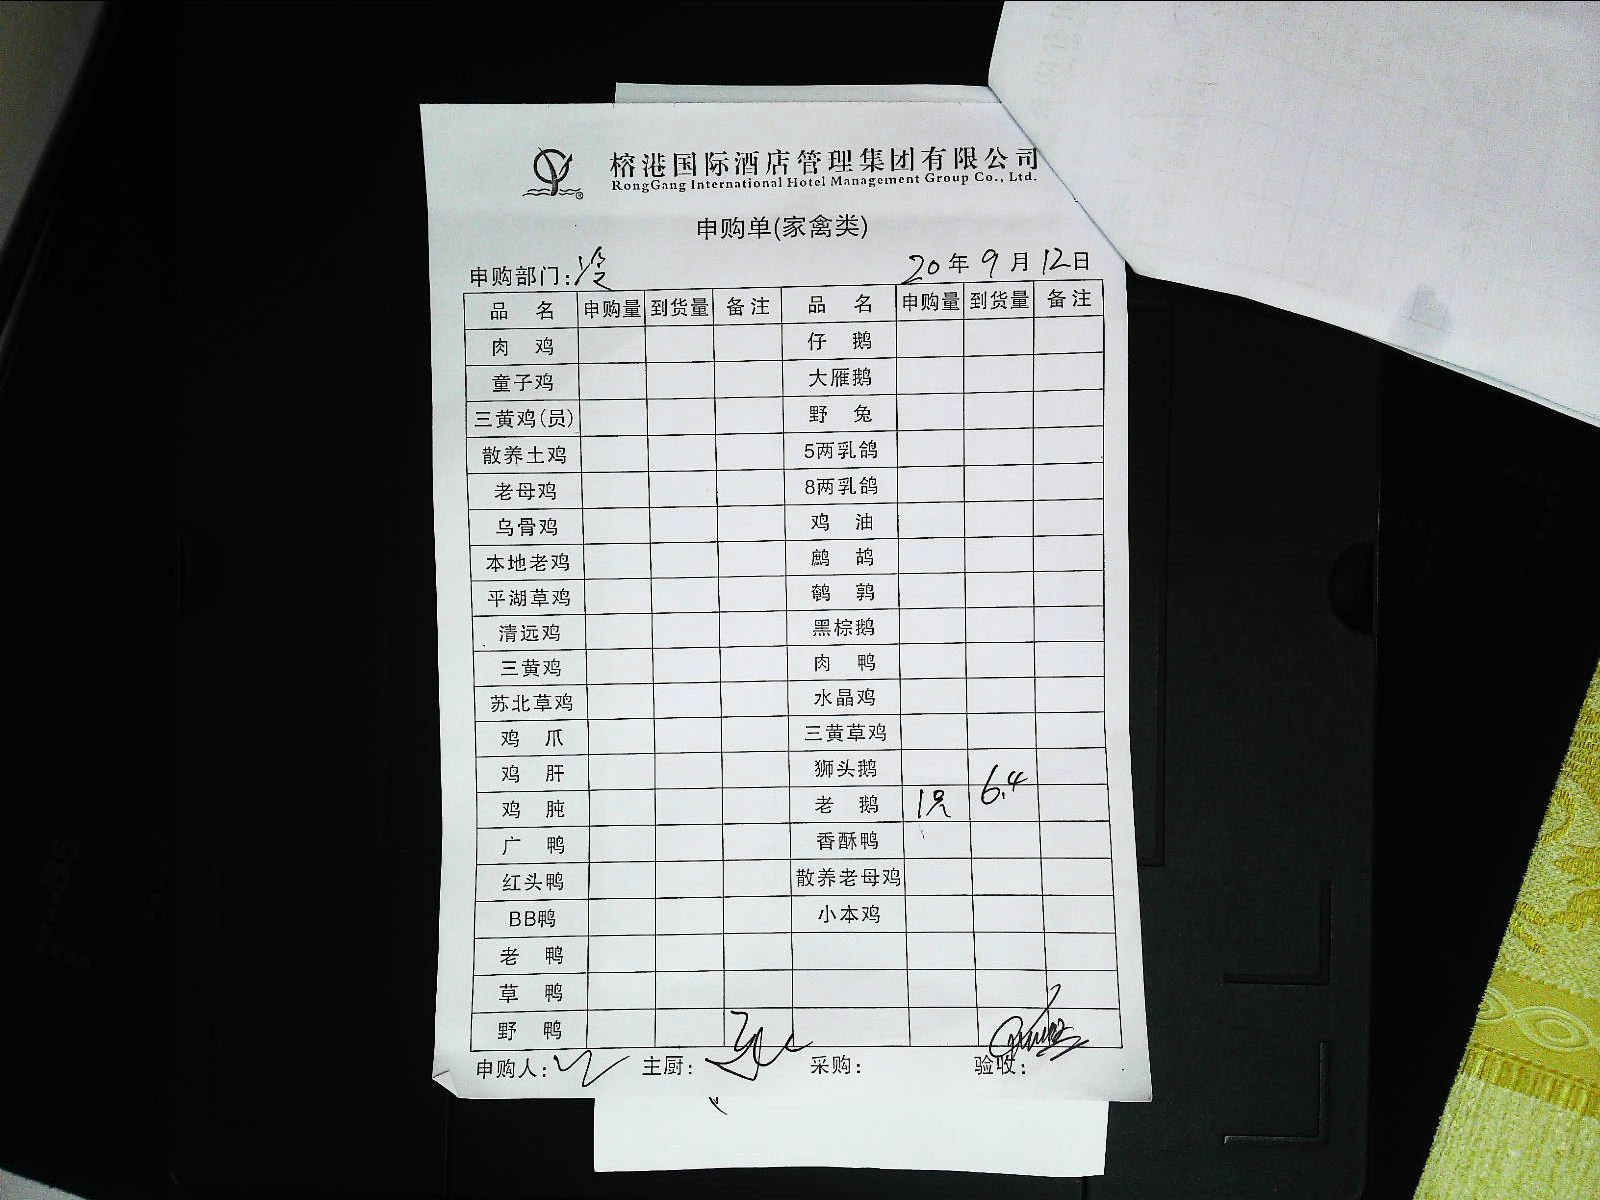 榕港国际酒店管理集团有限公司
RongGang International Hotel Management Group Co., Ltd.
申购单(家禽类)
申购部门:冷 20年9月12日
品名 申购量 到货量 备注 品名 申购量 到货量 备注
肉鸡 仔鹅
童子鸡 大雁鹅
三黄鸡(员) 野兔
散养土鸡 5两乳鸽
老母鸡 8两乳鸽
乌骨鸡 鸡油
本地老鸡 鹧鸪
平湖草鸡 鹌鹑
清远鸡 黑棕鹅
三黄鸡 肉鸭
苏北草鸡 水晶鸡
鸡爪 三黄草鸡
鸡肝 狮头鹅
鸡肫 老鹅 1只 6.4
广鸭 香酥鸭
红头鸭 散养老母鸡
BB鸭 小本鸡
老鸭
草鸭
野鸭
申购人: 主厨: 采购: 验收: